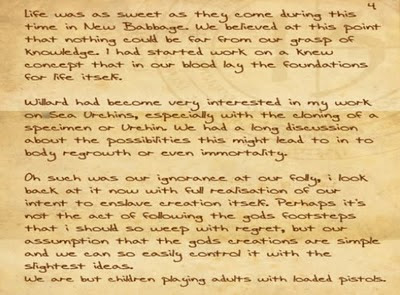 4
Life was as sweet as they come during this
time in New Babbage. We believed at this point
that nothing could be far from our grasp of
knowledge. I had started work on a knew
concept that in our blood lay the foundations
for life itself.
Willard had become very interested in my work
on Sea Urchins, especially with the cloning of a
specimen or Urchin. We had a long discussion
about the possibilities this might lead to in to
body regrowth or even immortality.
Oh such was our ignorance at our folly, i look
back at it now with full realisation of our
intent to enslave creation itself. Perhaps it's
not the act of following the gods footsteps
that i should so weep with regret, but our
assumption that the gods creations are simple
and we can so easily control it with the
slightest ideas.
We are but children playing adults with loaded pistols.